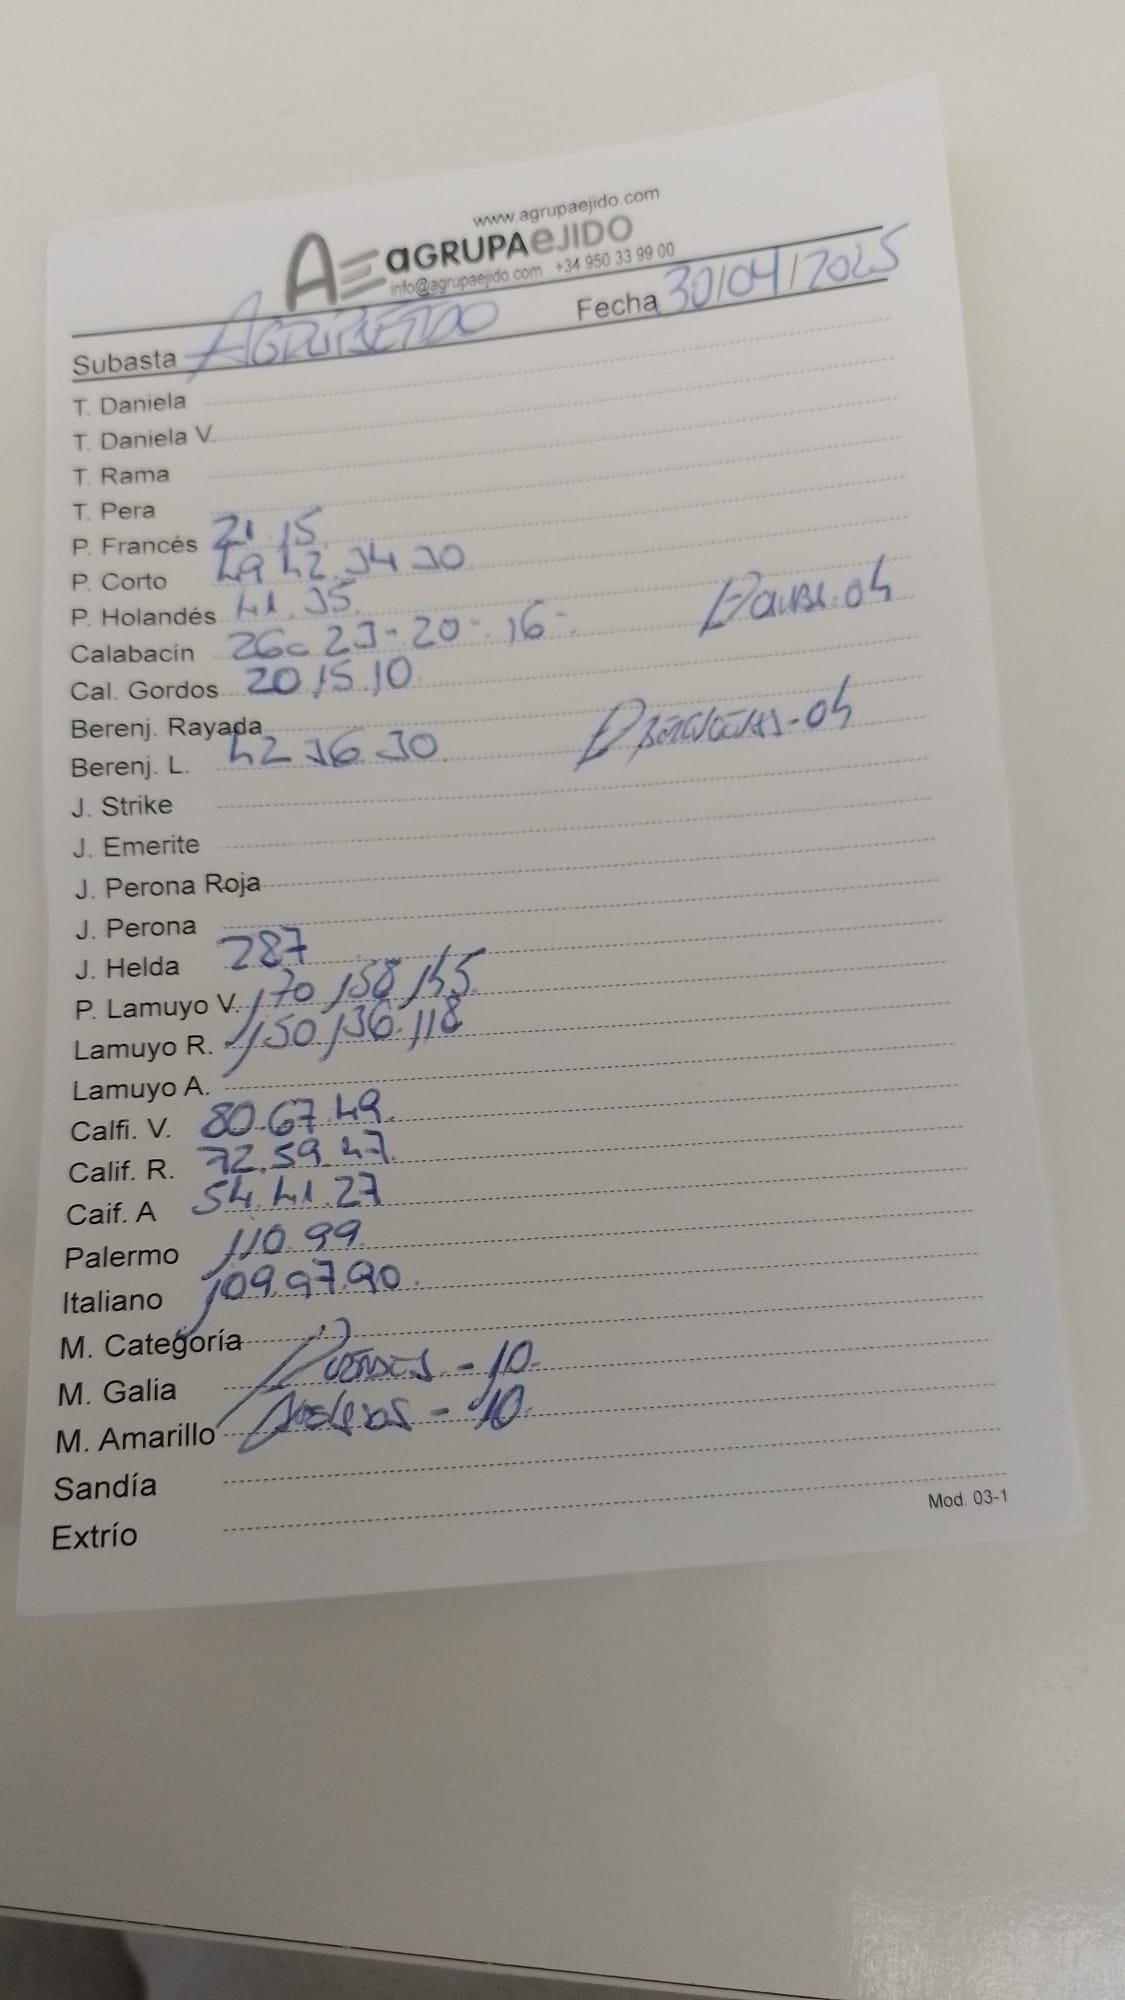 www.agrupaejido.com
AE aGRUPAeJIDO
info@agrupaejido.com +34 950 33 99 00
Subasta AGRUPAEJIDO Fecha 30/04/2025
T. Daniela
T. Daniela V.
T. Rama
T. Pera
P. Francés 21.15.
P. Corto 49 42.34 30
P. Holandés 41.35.
Calabacín 26-23-20-16- 04
Cal. Gordos 20.15.10.
Berenj. Rayada
Berenj. L. 42 36.30. -04
J. Strike
J. Emerite
J. Perona Roja
J. Perona
J. Helda 287
P. Lamuyo V. 170 158 145.
Lamuyo R. 150.136.118
Lamuyo A.
Calfi. V. 80.67.49.
Calif. R. 72.59.47.
Caif. A 54.41.27
Palermo 110.99.
Italiano 109.97.90.
M. Categoría
M. Galia -10.
M. Amarillo -10.
Sandía
Extrío
Mod. 03-1